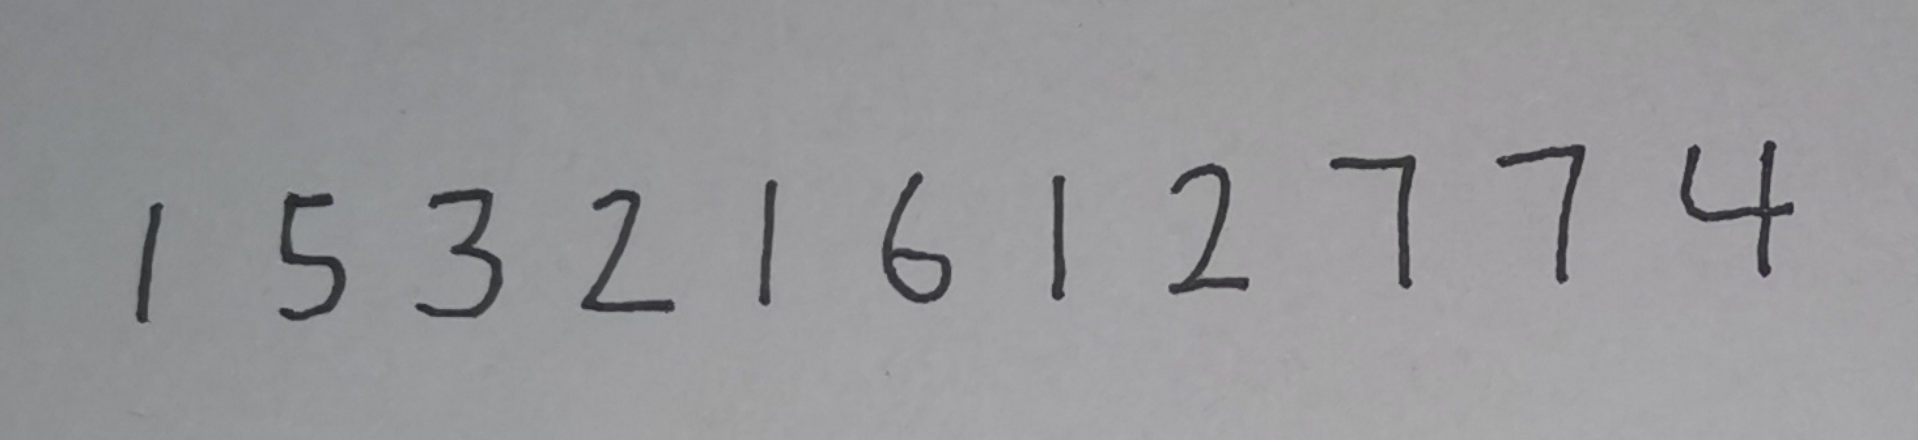 1 5 3 2 1 6 1 2 7 7 4